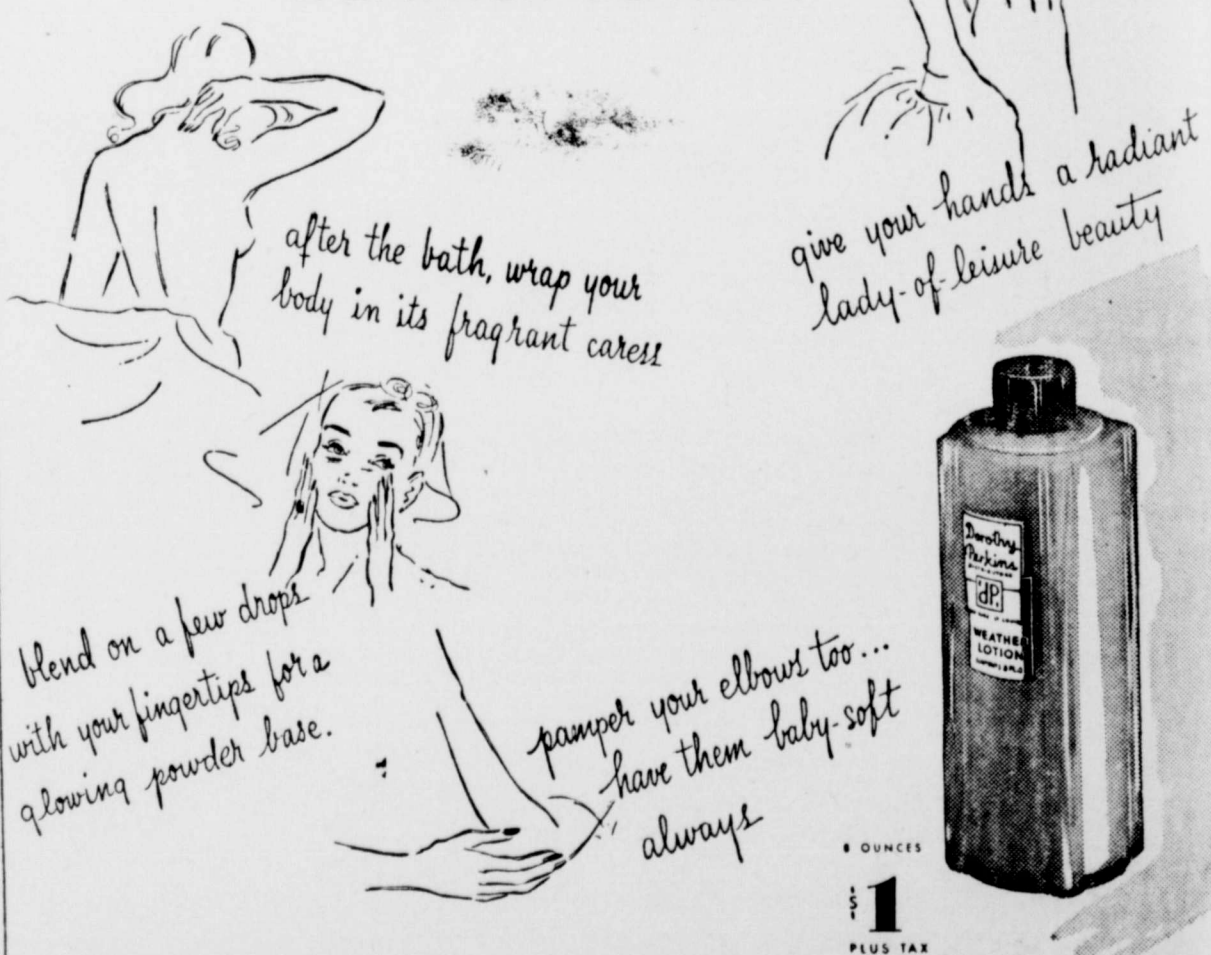 after the bath, wrap your
body in its fragrant caress
give your hands a radiant
lady-of-leisure beauty
blend on a few drops
with your fingertips for a
glowing powder base.
pamper your elbows too...
have them baby-soft
always
Dorothy
Perkins
dP.
WEATHER
LOTION
8 OUNCES
1
PLUS TAX